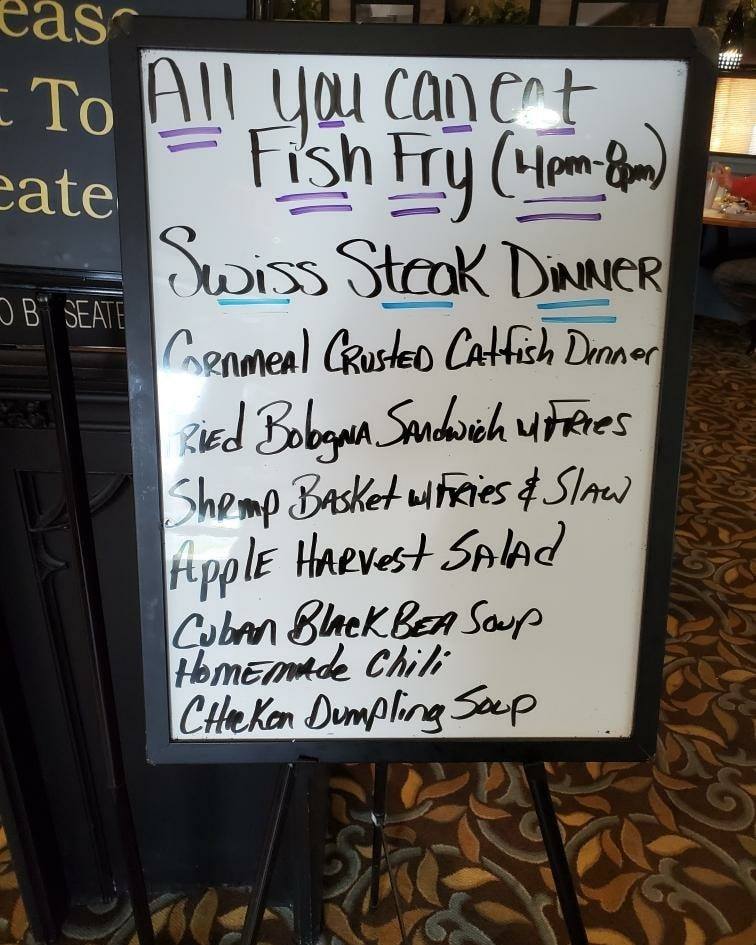 ease
t To
eate
O B SEATE
All you can eat
Fish Fry (4pm-8pm)
Swiss Steak DINNER
CORNMEAl CRUSTED CATfish Dinner
RIEd BolognA SANdwich w/ FRIES
Shrimp BASKet w/ FRIES & SlAW
Apple HARVest SAlAd
CubAn BlACK BEA Soup
HOMEMAde Chili
CHicKen Dumpling Soup